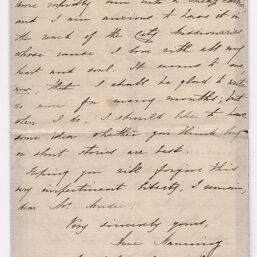 more rapidly
and I am anxious to have it in
the reach of the City Missionaries,
whose cause I love with all my
heart and soul. It seems to me
now, that I shall be glad to write
no more for many months; but
when I do, I should like to have
some idea whether you think long
or short stories are best.
Hoping you will forgive this
very impertinent liberty, I remain,
dear Mr.
Very sincerely yours,
Anne Manning.